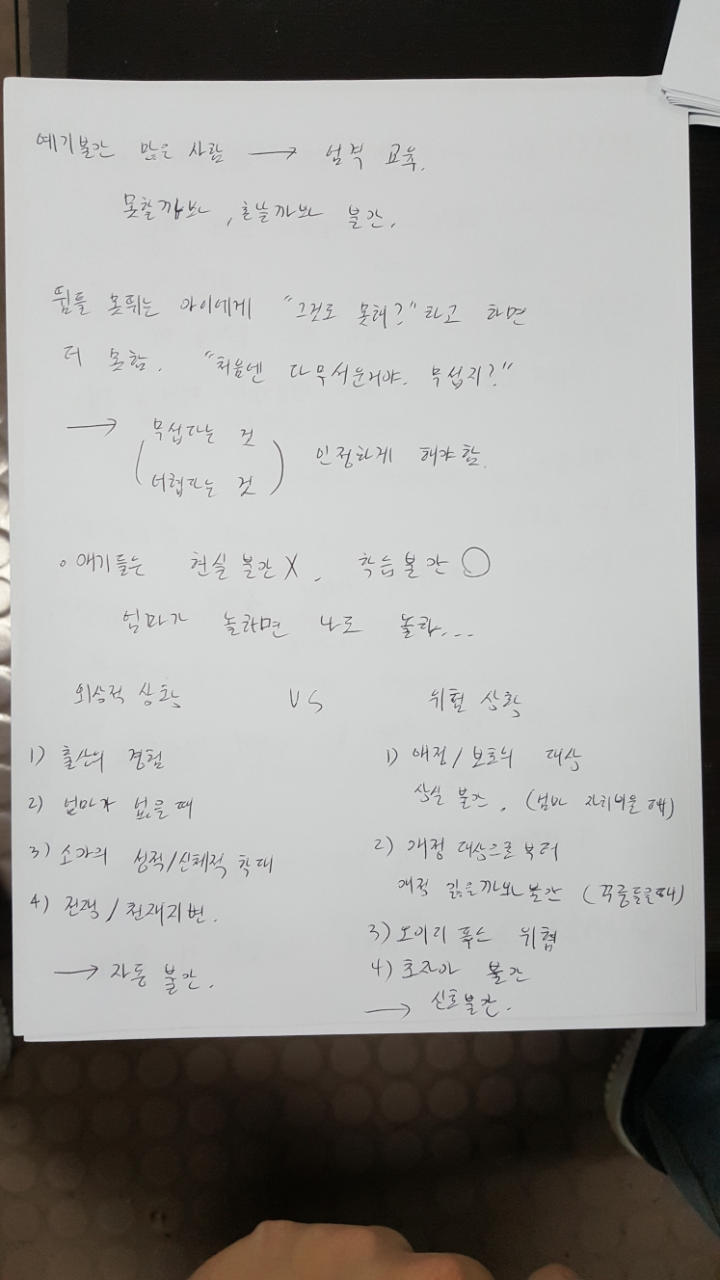 예기불안 많은 사람 → 엄격 교육.
못할까봐, 혼날까봐 불안.
뜀틀 못뛰는 아이에게 "그것도 못해?" 라고 하면
더 못함. "처음엔 다 무서운거야. 무섭지?"
→ ( 무섭다는 것
어렵다는 것 ) 인정하게 해야 함.
∘ 애기들은 현실 불안 X, 학습불안 ○
엄마가 놀라면 나도 놀라...
외상적 상황 VS 위험 상황
1) 출산의 경험
2) 엄마가 없을 때
3) 소아의 성적/신체적 학대
4) 전쟁 / 천재지변.
→ 자동 불안.
1) 애정 / 보호의 대상
상실 불안. (엄마 자리비울 때)
2) 애정 대상으로부터
애정 잃을까봐 불안 (꾸중들을때)
3) 오이디푸스 위협
4) 초자아 불안
→ 신호불안.